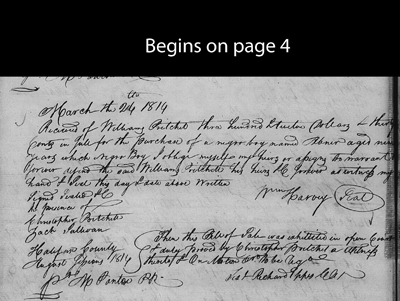 Begins on page 4
March th 24 1814
Received of William Pritchet three hundred & twelve Dollars & thirty
Cents in full for the purchase of a negro boy named Abner aged nine
years which Negro Boy I oblige myself my heirs or assigns to warrant &
forever defend the said William Pritchett his heirs &c forever as witness my
hand & Seal this day & date above Written
Wm Harvey Seal
Signed Sealed &c
in presence of
Christopher Pritchett
Zach Sullivan
Halifax County
August Session 1814
Then this Bill of Sale was exhibited in open Court
& duly proved by Christopher Pritchet a Witness
thereto & On Motion
Test Richard Eppes